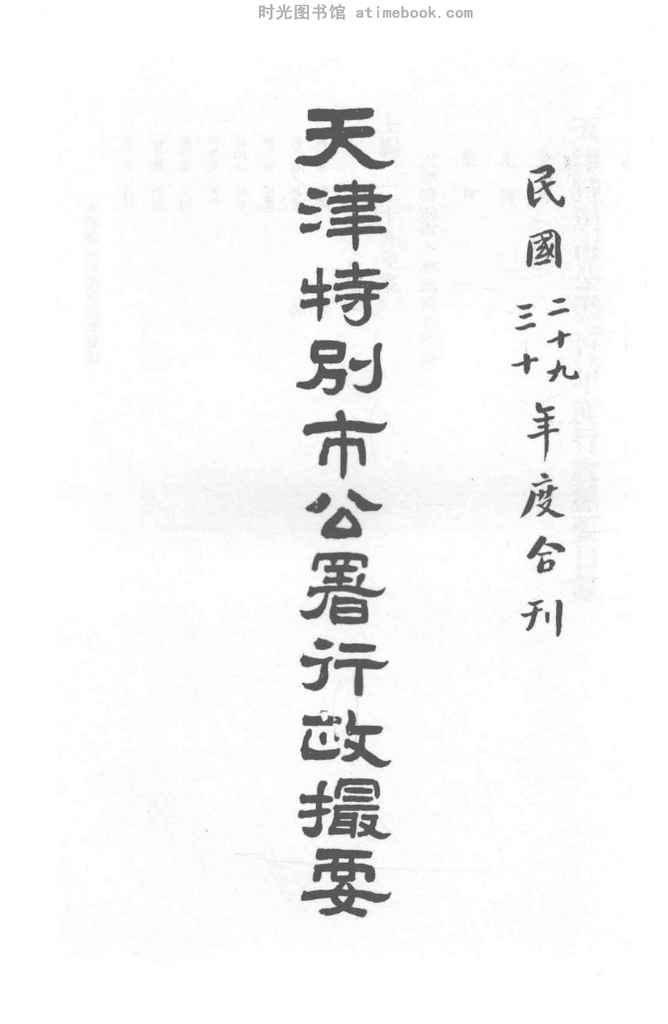 时光图书馆 atimebook.com
民國二十九三十年度合刊
天津特別市公署行政撮要